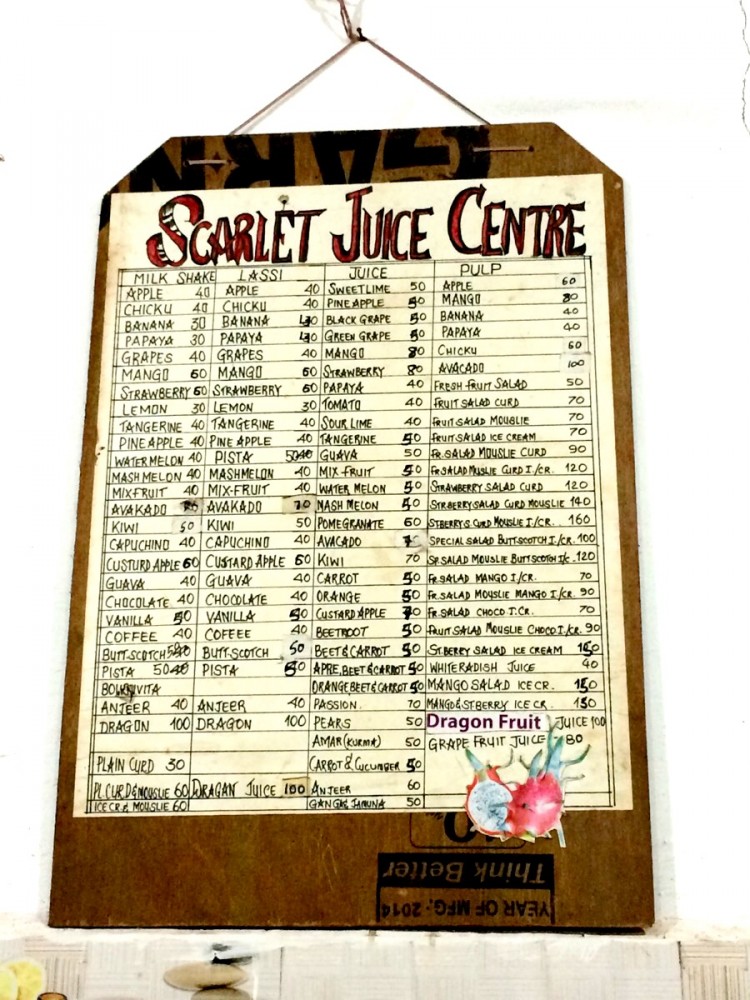 SCARLET JUICE CENTRE
MILK SHAKE LASSI JUICE PULP
APPLE 40 APPLE 40 SWEETLIME 50 APPLE 60
CHICKU 40 CHICKU 40 PINEAPPLE 50 MANGO 80
BANANA 30 BANANA BLACK GRAPE 50 BANANA 40
PAPAYA 30 PAPAYA GREEN GRAPE 50 PAPAYA 40
GRAPES 40 GRAPES 40 MANGO 80 CHICKU 60
MANGO 60 MANGO 60 STRAWBERRY 80 AVACADO 100
STRAWBERRY 60 STRAWBERRY 60 PAPAYA 40 FRESH FRUIT SALAD 50
LEMON 30 LEMON 30 TOMATO 40 FRUIT SALAD CURD 70
TANGERINE 40 TANGERINE 40 SOUR LIME 40 FRUIT SALAD MOUSLIE 70
PINEAPPLE 40 PINE APPLE 40 TANGERINE 50 FRUIT SALAD ICE CREAM 70
WATERMELON 40 PISTA 50 GUAVA 50 FR.SALAD MOUSLIE CURD 90
MASHMELON 40 MASHMELON 40 MIX-FRUIT 50 FR.SALAD MUSLIE CURD I/CR. 120
MIXFRUIT 40 MIX-FRUIT 40 WATER MELON 50 STRAWBERRY SALAD CURD 120
AVAKADO AVAKADO 70 MASH MELON 50 STRBERRY SALAD CURD MOUSLIE 140
KIWI 50 KIWI 50 POMEGRANATE 60 STBERRY S. CURD MOUSLIE I/CR. 160
CAPUCHINO 40 CAPUCHINO 40 AVACADO SPECIAL SALAD BUTTSCOTCH I/CR. 100
CUSTURD APPLE 60 CUSTARD APPLE 60 KIWI 70 SP.SALAD MOUSLIE BUTTSCOTCH I/c. 120
GUAVA 40 GUAVA 40 CARROT 50 FR.SALAD MANGO I/CR. 70
CHOCOLATE 40 CHOCOLATE 40 ORANGE 50 FR.SALAD MOUSLIE MANGO I/CR. 90
VANILLA 50 VANILLA 50 CUSTARD APPLE 70 FR.SALAD CHOCO I.CR. 70
COFFEE 40 COFFEE 40 BEETROOT 50 FRUIT SALAD MOUSLIE CHOCO I/CR. 90
BUTT.SCOTCH 50 BUTT.SCOTCH 50 BEET&CARROT 50 ST.BERRY SALAD ICE CREAM 150
PISTA 50 PISTA 50 APPLE,BEET&CARROT 50 WHITERADISH JUICE 40
ORANGE BEET&CARROT 50 MANGO SALAD ICE CR. 150
ANJEER 40 ANJEER 40 PASSION. 70 MANGO&ST.BERRY ICE CR. 150
DRAGON 100 DRAGON 100 PEARS 50 Dragon Fruit JUICE 100
AMAR (KURMA) 50 GRAPE FRUIT JUICE 80
PLAIN CURD 30 CARROT & CUCUMBER 50
PL CURD&MOUSLIE 60 DRAGAN JUICE 100 ANJEER 60
ICE CR.& MOUSLIE 60 GANGA& JAMUNA 50
Think Better
YEAR OF MFG.-2014